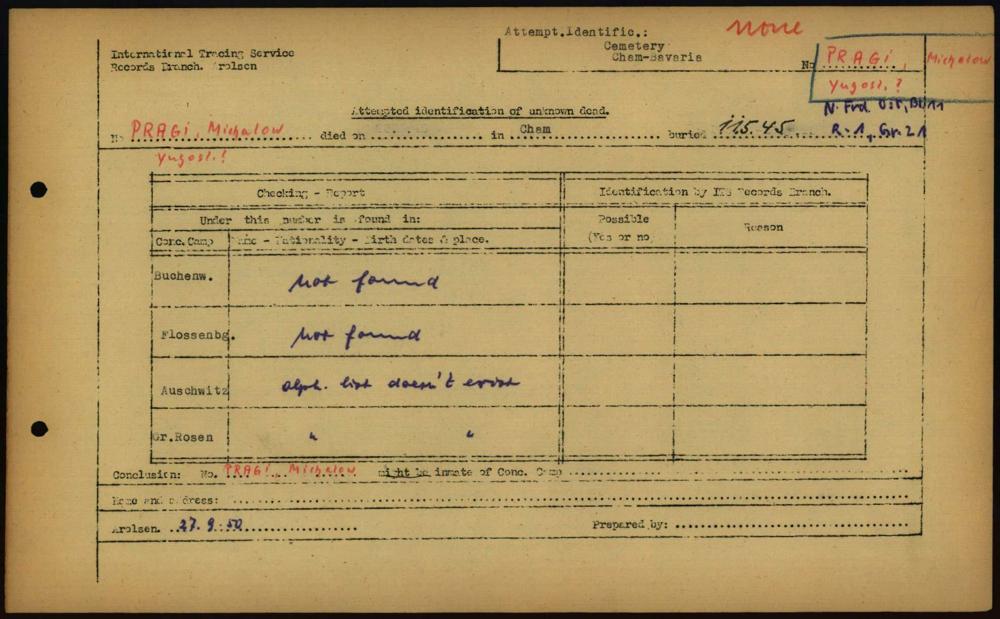 Attempt.Identific.:
none
Cemetery
Cham-Bavaria
International Tracing Service
Records Branch. Arolsen
No PRAGI, Michalow
Yugosl.?
N. Frd. Ost, Bl. 11
R-1, Gr. 21
Attempted identification of unknown dead.
No PRAGI, Michalow died on in Cham buried 11.5.45
Yugosl.!
Checking - Report
Identification by ITS Records Branch.
Under this number is found in:
Possible
(Yes or no)
Reason
Conc. Camp
Name - Nationality - Birth dates & place.
Buchenw. Not found
Flossenbg. Not found
Auschwitz alph. list doesn't exist
Gr.Rosen " "
Conclusion: No. PRAGI, Michalow might be inmate of Conc. Camp
Name and address:
Arolsen. 27.9.50
Prepared by: